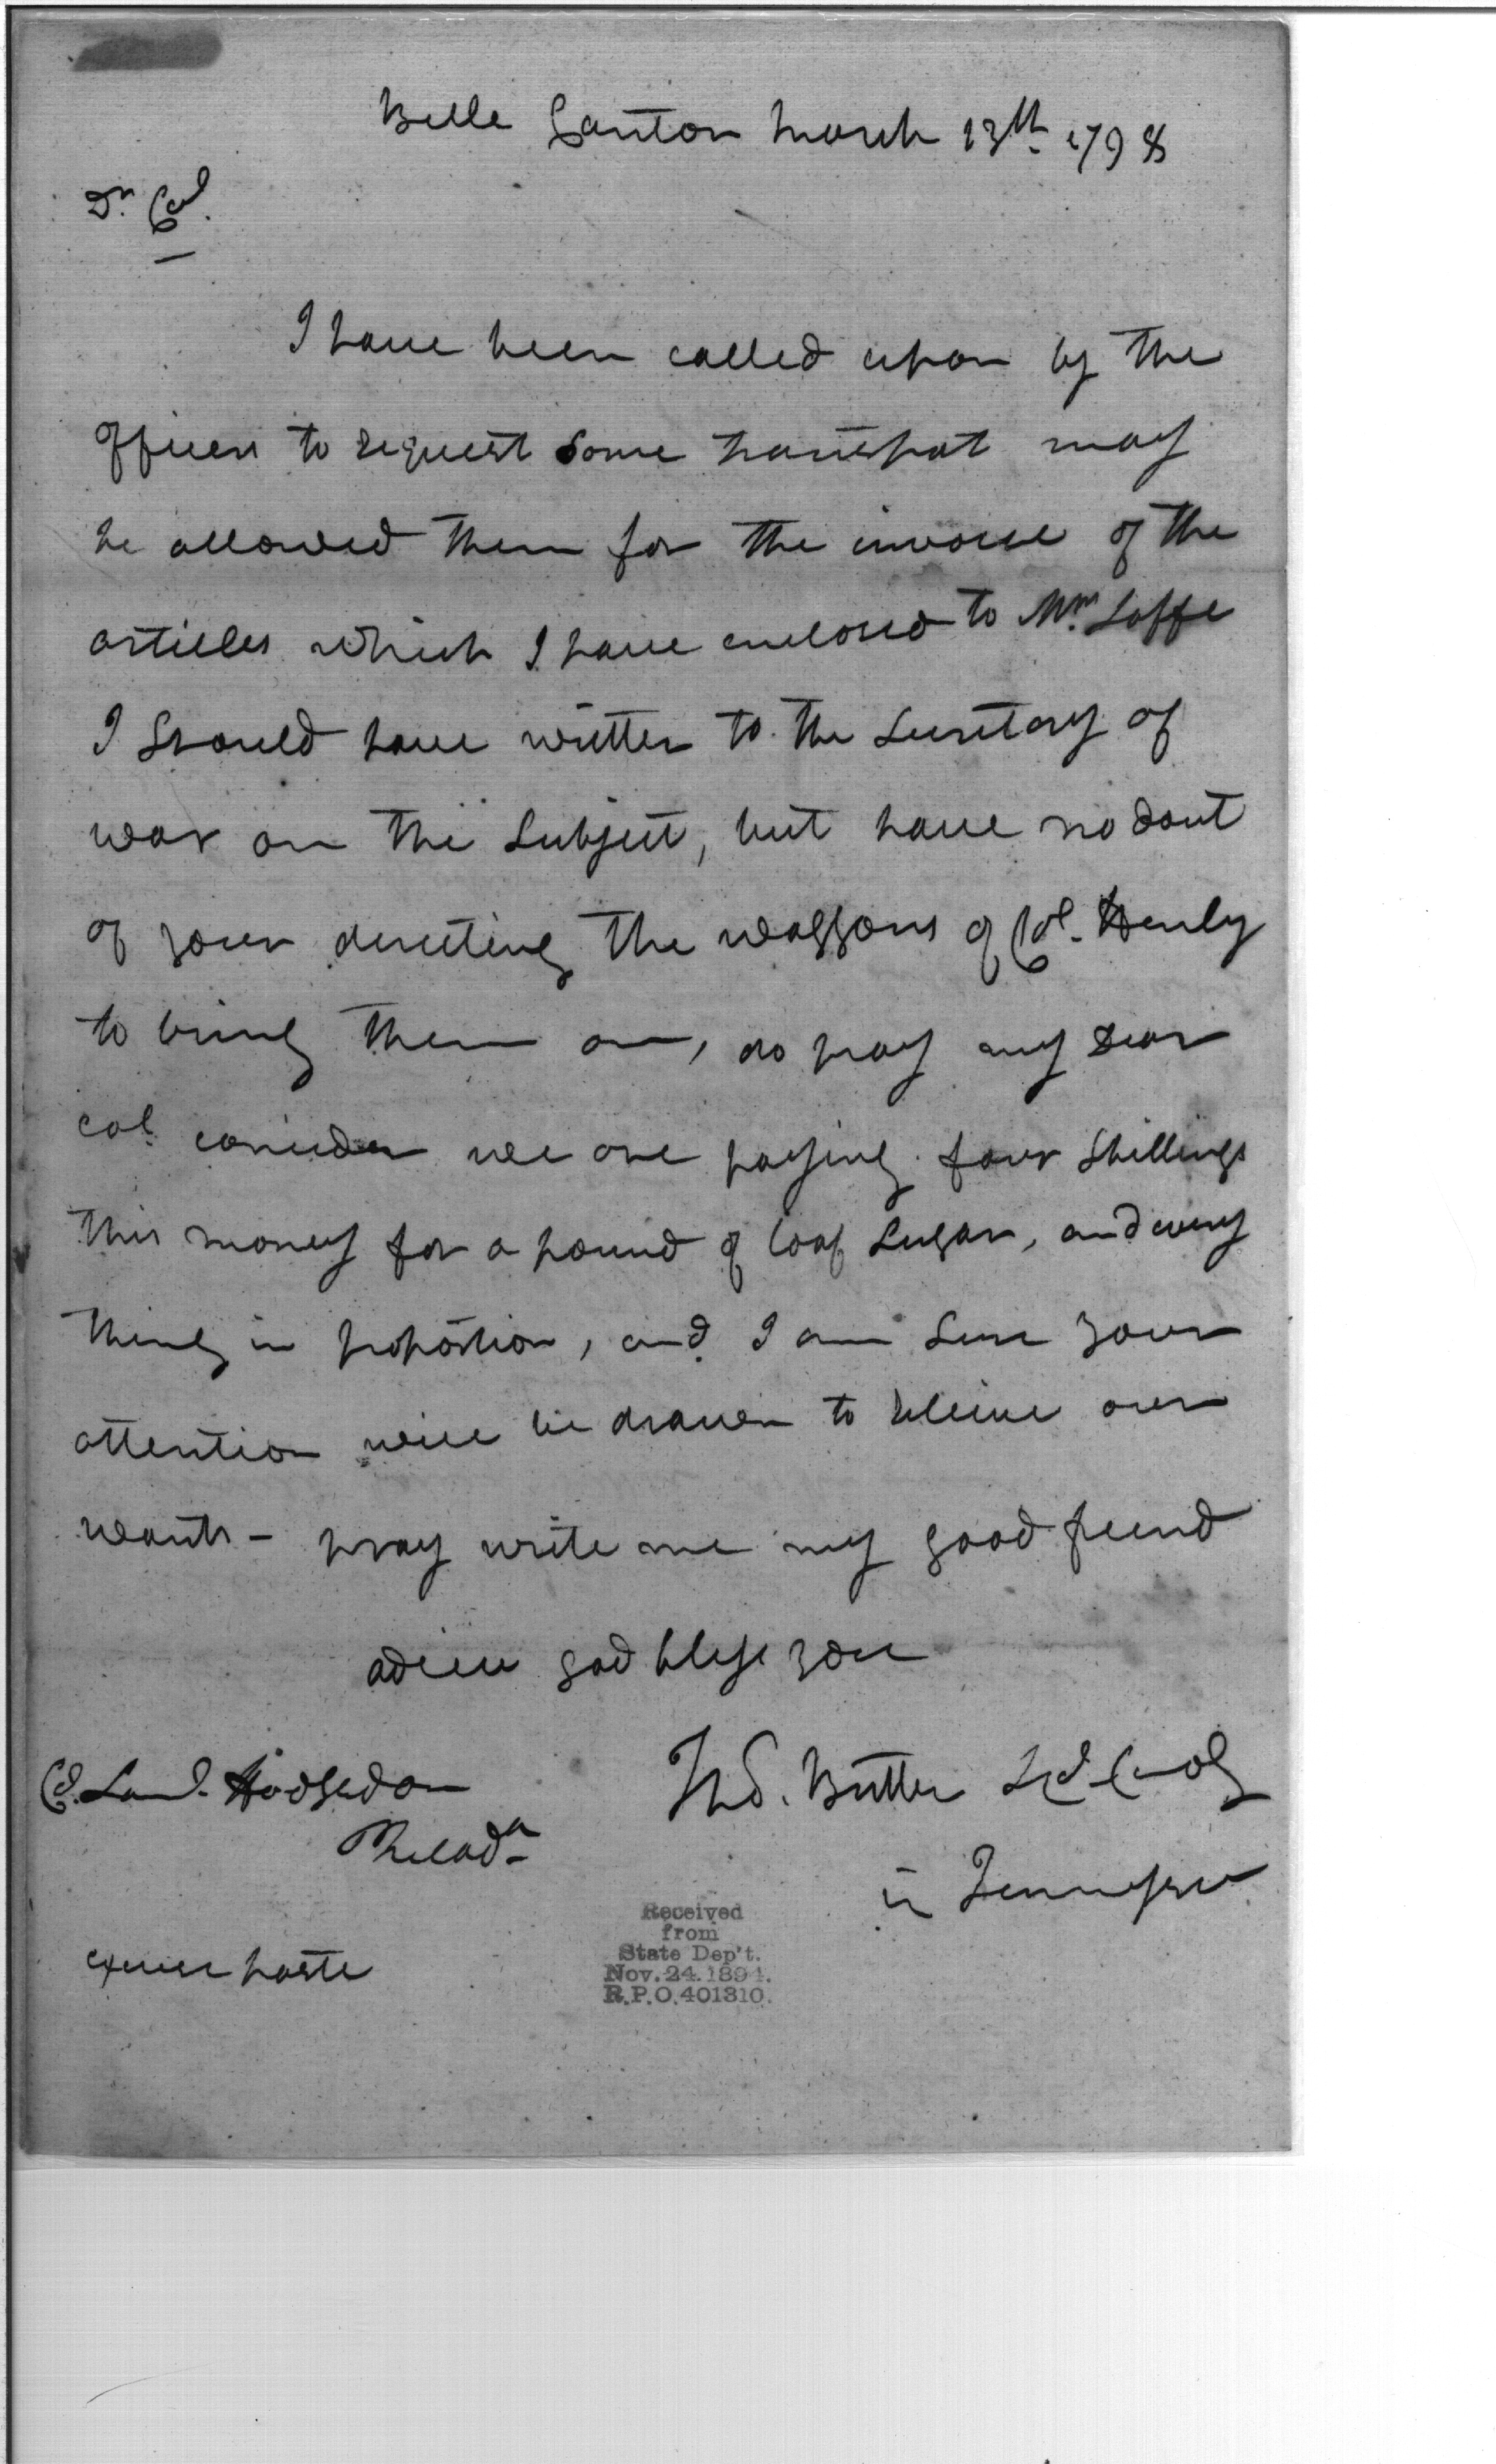 Belle Canton March 13th 1798
Dr. Col.
I have been called upon by the
officers to request some transpot may
be allowed them for the invoice of the
articles which I have enclosed to Mr. Joffe
I Should have written to the Secretary of
war on the Subject, but have no dout
of your directing the waggons of Col. Henly
to bring them on, do pray my Dear
Col. consider we are paying four Shillings
this money for a pound of loaf Sugar, and every
thing in propotion, and I am Sure your
attention will be drawn to releive our
wants - pray write me my good freind
adieu god bless you
Thos. Butler Lt. Col.
in Tennessee
Col. Saml. Hodgsdon
Philada
excuse haste
Received
from
State Dep't.
Nov. 24. 1894.
R.P.O. 401310.